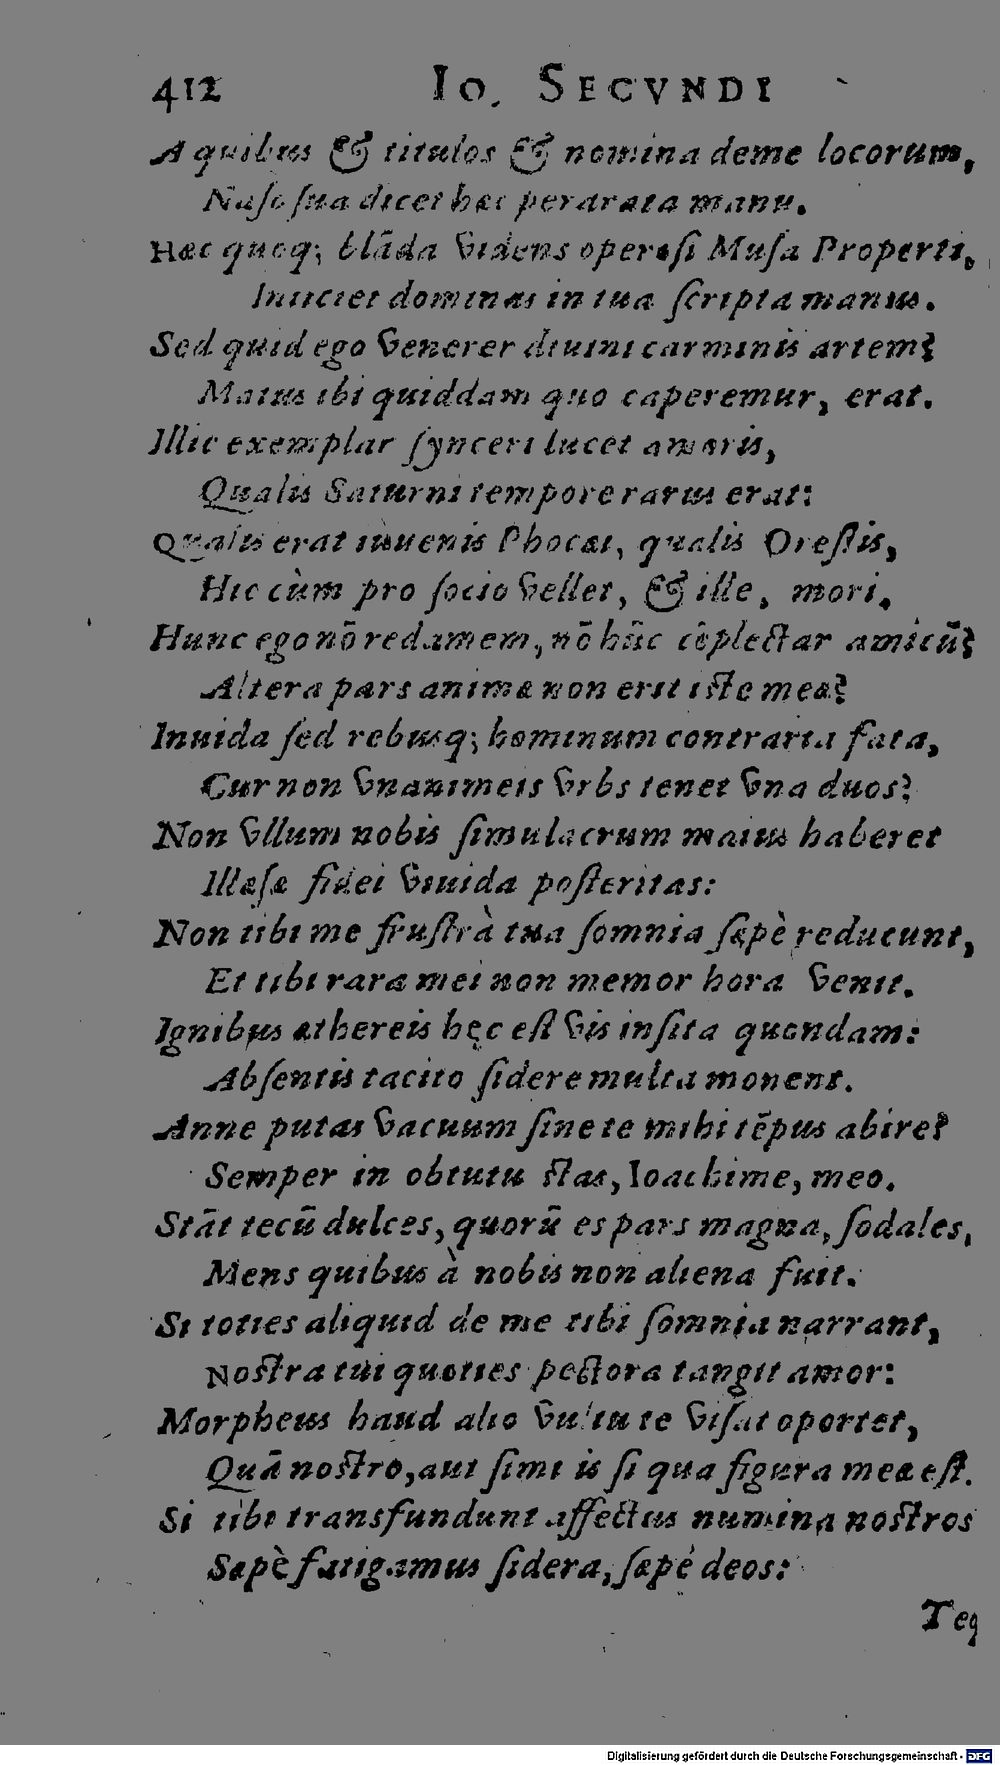 412 IO. SECVNDI
A quibus & titulos & nomina deme locorum,
Naso sua dicet hæc perarata manu.
Hæc quoq; blāda videns operosi Musa Properti,
Iniiciet dominas in tua scripta manus.
Sed quid ego venerer diuini carminis artem?
Maius ibi quiddam quo caperemur, erat.
Illic exemplar synceri lucet amoris,
Qualis Saturni tempore rarus erat:
Qualis erat iuuenis Phocæi, qualis Orestis,
Hic cùm pro socio vellet, & ille, mori.
Hunc ego nō redamem, nō hūc cōplectar amicū?
Altera pars animæ non erit iste meæ?
Inuida sed rebusq; hominum contraria fata,
Cur non vnanimeis vrbs tenet vna duos?
Non vllum nobis simulacrum maius haberet
Illæsæ fidei viuida posteritas:
Non tibi me frustrà tua somnia sæpè reducunt,
Et tibi rara mei non memor hora venit.
Ignibus æthereis hęc est vis insita quondam:
Absentis tacito sidere multa monent.
Anne putas vacuum sine te mihi tēpus abire?
Semper in obtutu stas, Ioachime, meo.
Stāt tecū dulces, quorū es pars magna, sodales,
Mens quibus à nobis non aliena fuit.
Si toties aliquid de me tibi somnia narrant,
Nostra tui quoties pectora tangit amor:
Morpheus haud alio vultu te visat oportet,
Quā nostro, aut simi is si qua figura meæ est.
Si tibi transfundunt affectus numina nostros
Sæpè fatigamus sidera, sæpé deos:
Teq
Digitalisierung gefördert durch die Deutsche Forschungsgemeinschaft - DFG